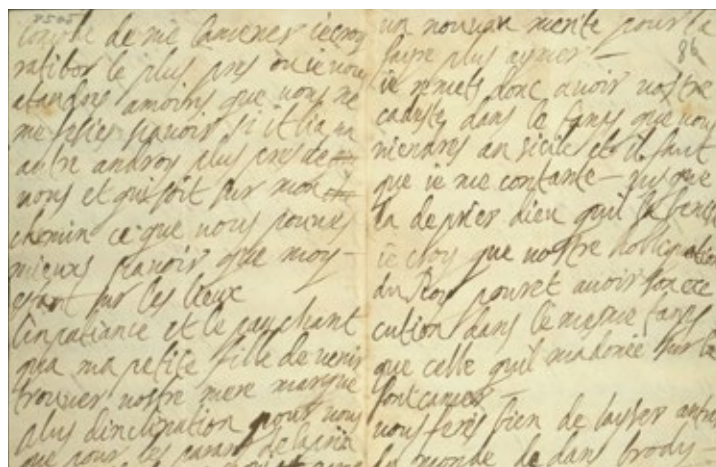 de me lamener ie croy
ratibor le plus pres ou ie vous
atandres amoins que vous ne
me fesies sçavoir si il lia un
autre androy plus pres de
vous et qui soit sur mon
chemin ce que vous pouves
mieux sçavoir que moy
estant sur les lieux
linpatiance et le panchant
qua ma petite fille de venir
trouver vostre mere marque
plus dinclination pour vous
que pour les parans de
un nouvau merite pour la
faire plus aymer
84
ie remets donc avoir vostre
cadaste dans le tamps que vous
viendres an sicile et il faut
que ie me contante jusque
la de prier dieu quil la benisse
ie croy que vostre hobligation
du Roy pouret avoir son exe
cution dans le mesme tamps
que celle quil madonée sur le
vous feres bien de laysser antrer
du monde de dans brody